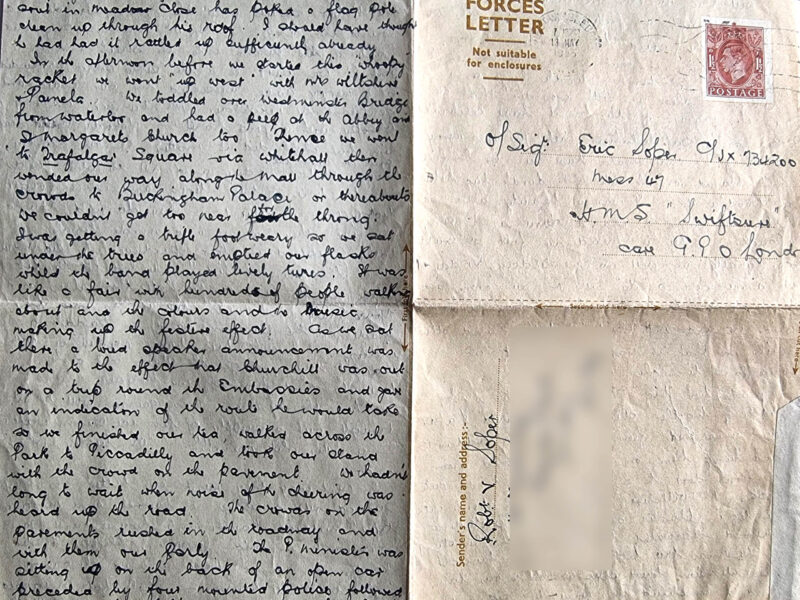 soul in meadow close has poked a flag pole
clean up through his roof. I should have though
he had had it rattled up sufficiently already
In the afternoon before we started this "whoopy"
racket we went "up west" with Mrs Wiltshire
& Pamela. We toddled over Westminster Bridge
from Waterloo and had a peep at the Abbey and
St Margarets Church too. Thence we went
to Trafalgar Square via Whitehall then
wended our way along the Mall through the
crowds to Buckingham Palace or thereabouts
we couldn't get too near for the throng.
I was getting a trifle foot weary so we sat
under the trees and emptied our flasks
whilst the band played lively tunes. It was
like a fair with hundreds of people walking
about and the colours and the music
making up the festive effect. As we sat
there a loud speaker announcement was
made to the effect that Churchill was out
on a trip round the Embassies and gave
an indication of the route he would take
so we finished our tea, walked across the
Park to Piccadilly and took our stand
with the crowd on the pavement. We hadn't
long to wait when noise of the cheering was
heard up the road. The crowds on the
pavements rushed in the roadway and
with them our party. The P. minister was
sitting up on the back of an open car
preceded by four mounted police followed
FORCES
LETTER
Not suitable
for enclosures
13 MAY
POSTAGE
O/Sig. Eric Soper C/JX 734200
Mess 47
H.M.S. "Swiftsure"
care G.P.O London
Sender's name and address:-
Robt V Soper